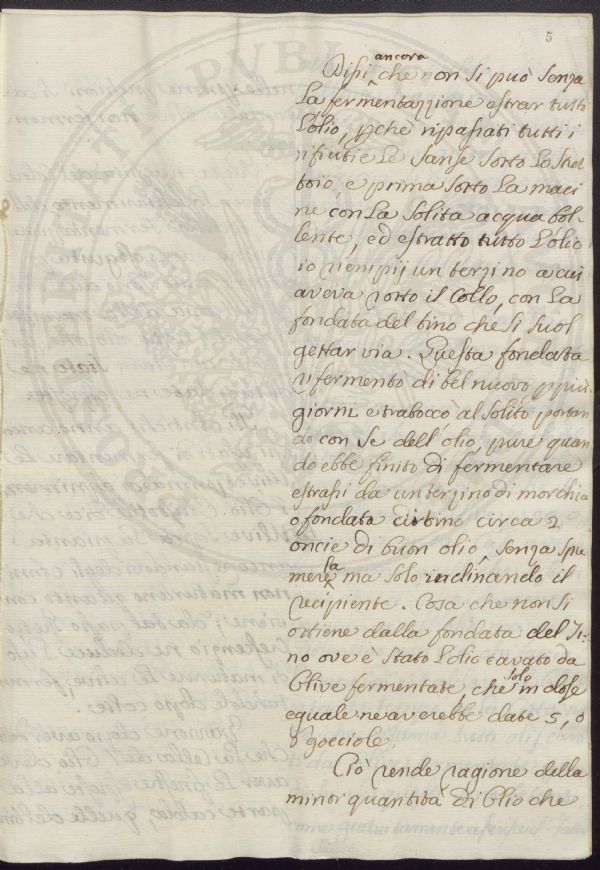 5
ancora
Dissi che non si può senza
la fermentazzione estrar tutti
l'olio, pche ripassati tutti i
rifiuti e le sanse sotto lo stret
toio, e prima sotto la maci
ne con la solita acqua bol-
lente, ed estratto tutto l'olio
io riempij un terzino a cui
aveva rotto il collo, con la
fondata del tino che si suol
gettar via. Questa fondata
rifermentò di bel nuovo p più
giorni e traboccò al solito portan
do con se dell'olio, pure quan
do ebbe finito di fermentare
estrassi da un terzino di morchia
o fondata circa 2
oncie di buon olio, senza spre
mere la ma solo inclinando il
recipiente. Cosa che non si
ottiene dalla fondata del Ti-
no ove è stato l'olio cavato da
Olive fermentate, che solo in dose
eguale ne averebbe date 5, o
6 gocciole.
Ciò rende ragione della
minor quantità di Olio che